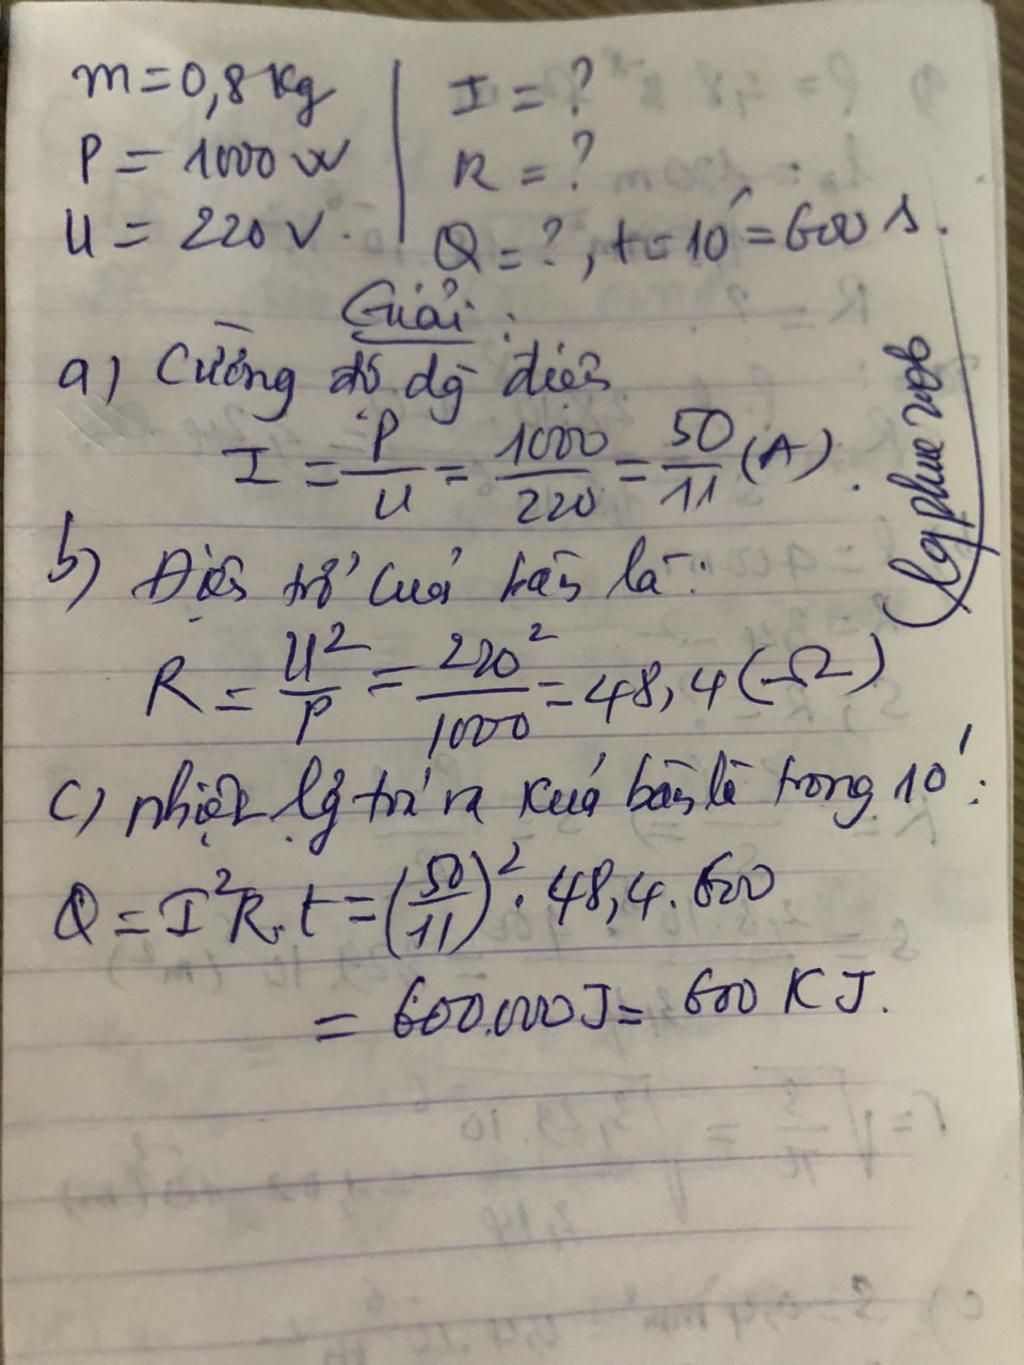 m = 0,8 Kg
P = 1000 W
U = 220 V.
I = ?
R = ?
Q = ?, t = 10' = 600 s.
Giải:
a) Cường độ dg̀ điện
I = P/U = 1000/220 = 50/11 (A).
b) Điện trở của bàn là:
R = U²/P = 220²/1000 = 48,4 (Ω)
c) Nhiệt lg̣ toả ra của bàn là trong 10':
Q = I²R.t = (50/11)². 48,4. 600
= 600.000J = 600 KJ.
lgphuc2006